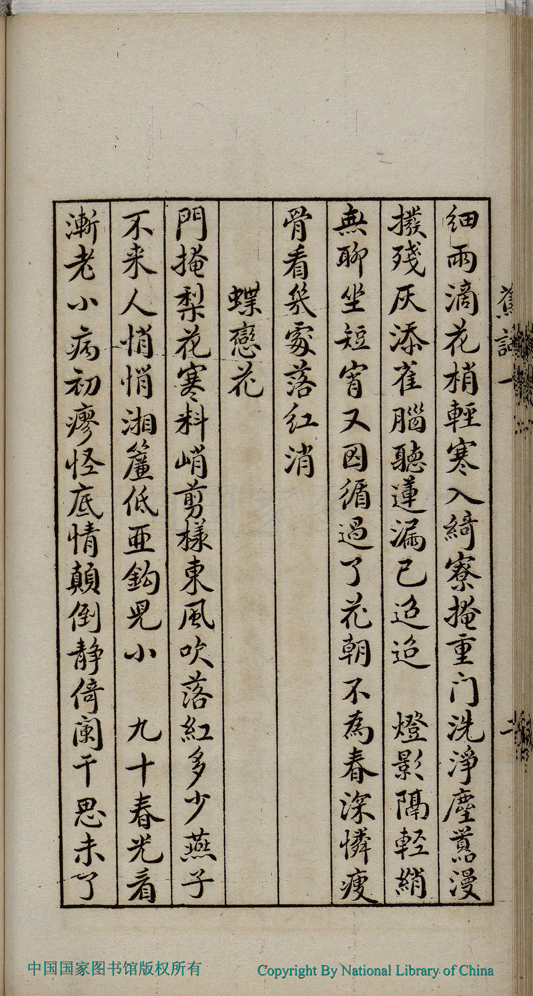 細雨滴花梢輕寒入綺寮掩重门洗淨塵囂漫
撥殘灰添雀腦聽蓮漏已迢迢　燈影隔輕綃
無聊坐短宵又因循過了花朝不為春深憐瘦
骨看幾處落紅消
蝶戀花
門掩梨花寒料峭剪樣東風吹落紅多少燕子
不来人悄悄湘簾低亜鈎兒小　九十春光看
漸老小病初瘳怪底情顛倒静倚阑干思未了
中国国家图书馆版权所有
Copyright By National Library of China